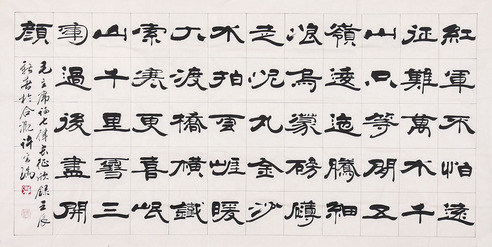 紅軍不怕遠
征難萬水千
山只等閒五
嶺逶迤騰細
浪烏蒙磅礴
走泥丸金沙
水拍雲崖暖
大渡橋橫鐵
索寒更喜岷
山千里雪三
軍過後盡開
顏
毛主席詩七律長征欣錄壬辰
新春於合肥許